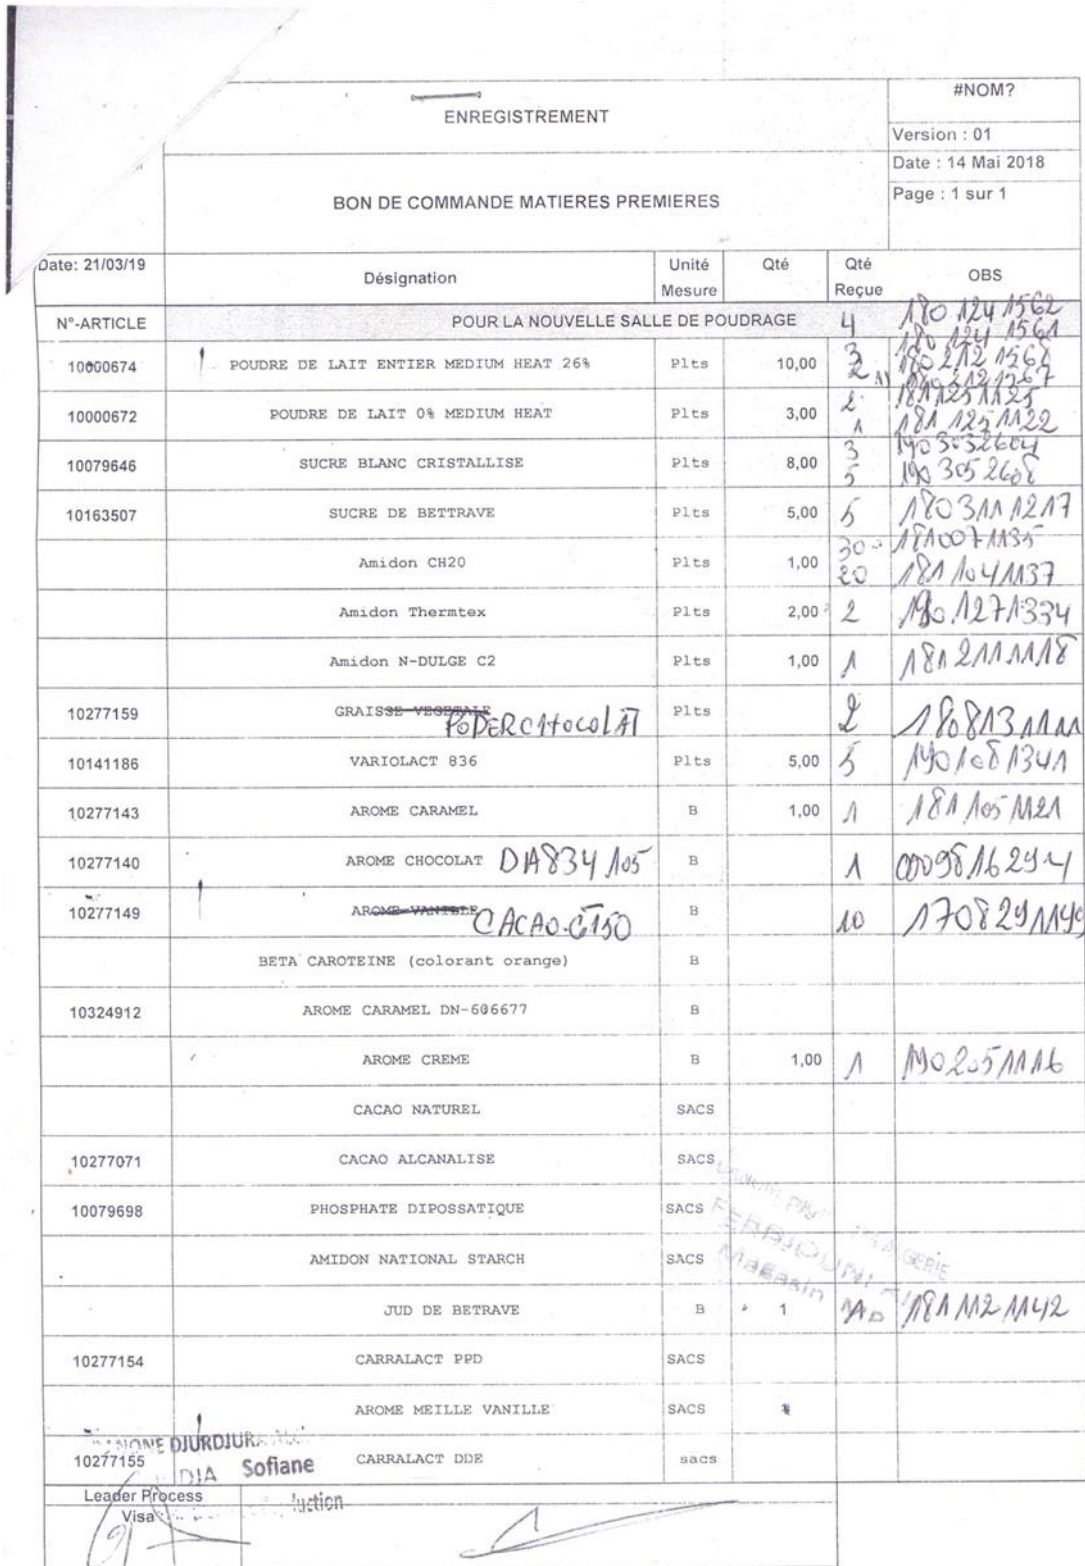 ENREGISTREMENT
#NOM?
Version : 01
Date : 14 Mai 2018
BON DE COMMANDE MATIERES PREMIERES
Page : 1 sur 1
Date: 21/03/19 Désignation Unité Mesure Qté Qté Reçue OBS
N°-ARTICLE POUR LA NOUVELLE SALLE DE POUDRAGE 4 180 124 1562
180 124 1561
10000674 POUDRE DE LAIT ENTIER MEDIUM HEAT 26% Plts 10,00 3 2
10000672 POUDRE DE LAIT 0% MEDIUM HEAT Plts 3,00 2 181 125 1125
1 181 125 1122
10079646 SUCRE BLANC CRISTALLISE Plts 8,00 3 190 3032604
5 190 305 2608
10163507 SUCRE DE BETTRAVE Plts 5,00 5 180311 1217
Amidon CH20 Plts 1,00 30 1810071135
20 181 1041137
Amidon Thermtex Plts 2,00 2 190.1271334
Amidon N-DULGE C2 Plts 1,00 1 181 2111118
10277159 GRAISSE VEGETALE PODERCHOCOLAT Plts 2 180813 1111
10141186 VARIOLACT 836 Plts 5,00 5 190108 1341
10277143 AROME CARAMEL B 1,00 1 181 105 1121
10277140 AROME CHOCOLAT DIA834 105 B 1
10277149 AROME VANILLE CACAO.GT50 B 10 170829 1149
BETA CAROTEINE (colorant orange) B
10324912 AROME CARAMEL DN-606677 B
AROME CREME B 1,00 1 190205 1116
CACAO NATUREL SACS
10277071 CACAO ALCANALISE SACS
10079698 PHOSPHATE DIPOSSATIQUE SACS
AMIDON NATIONAL STARCH SACS
FERDJOUNI
Magasin MP
JUD DE BETRAVE B 1 1 181 112 1142
10277154 CARRALACT PPD SACS
AROME MEILLE VANILLE SACS
DJURDJURA
10277155 CARRALACT DDE sacs
DJA Sofiane
Leader Process
Visa